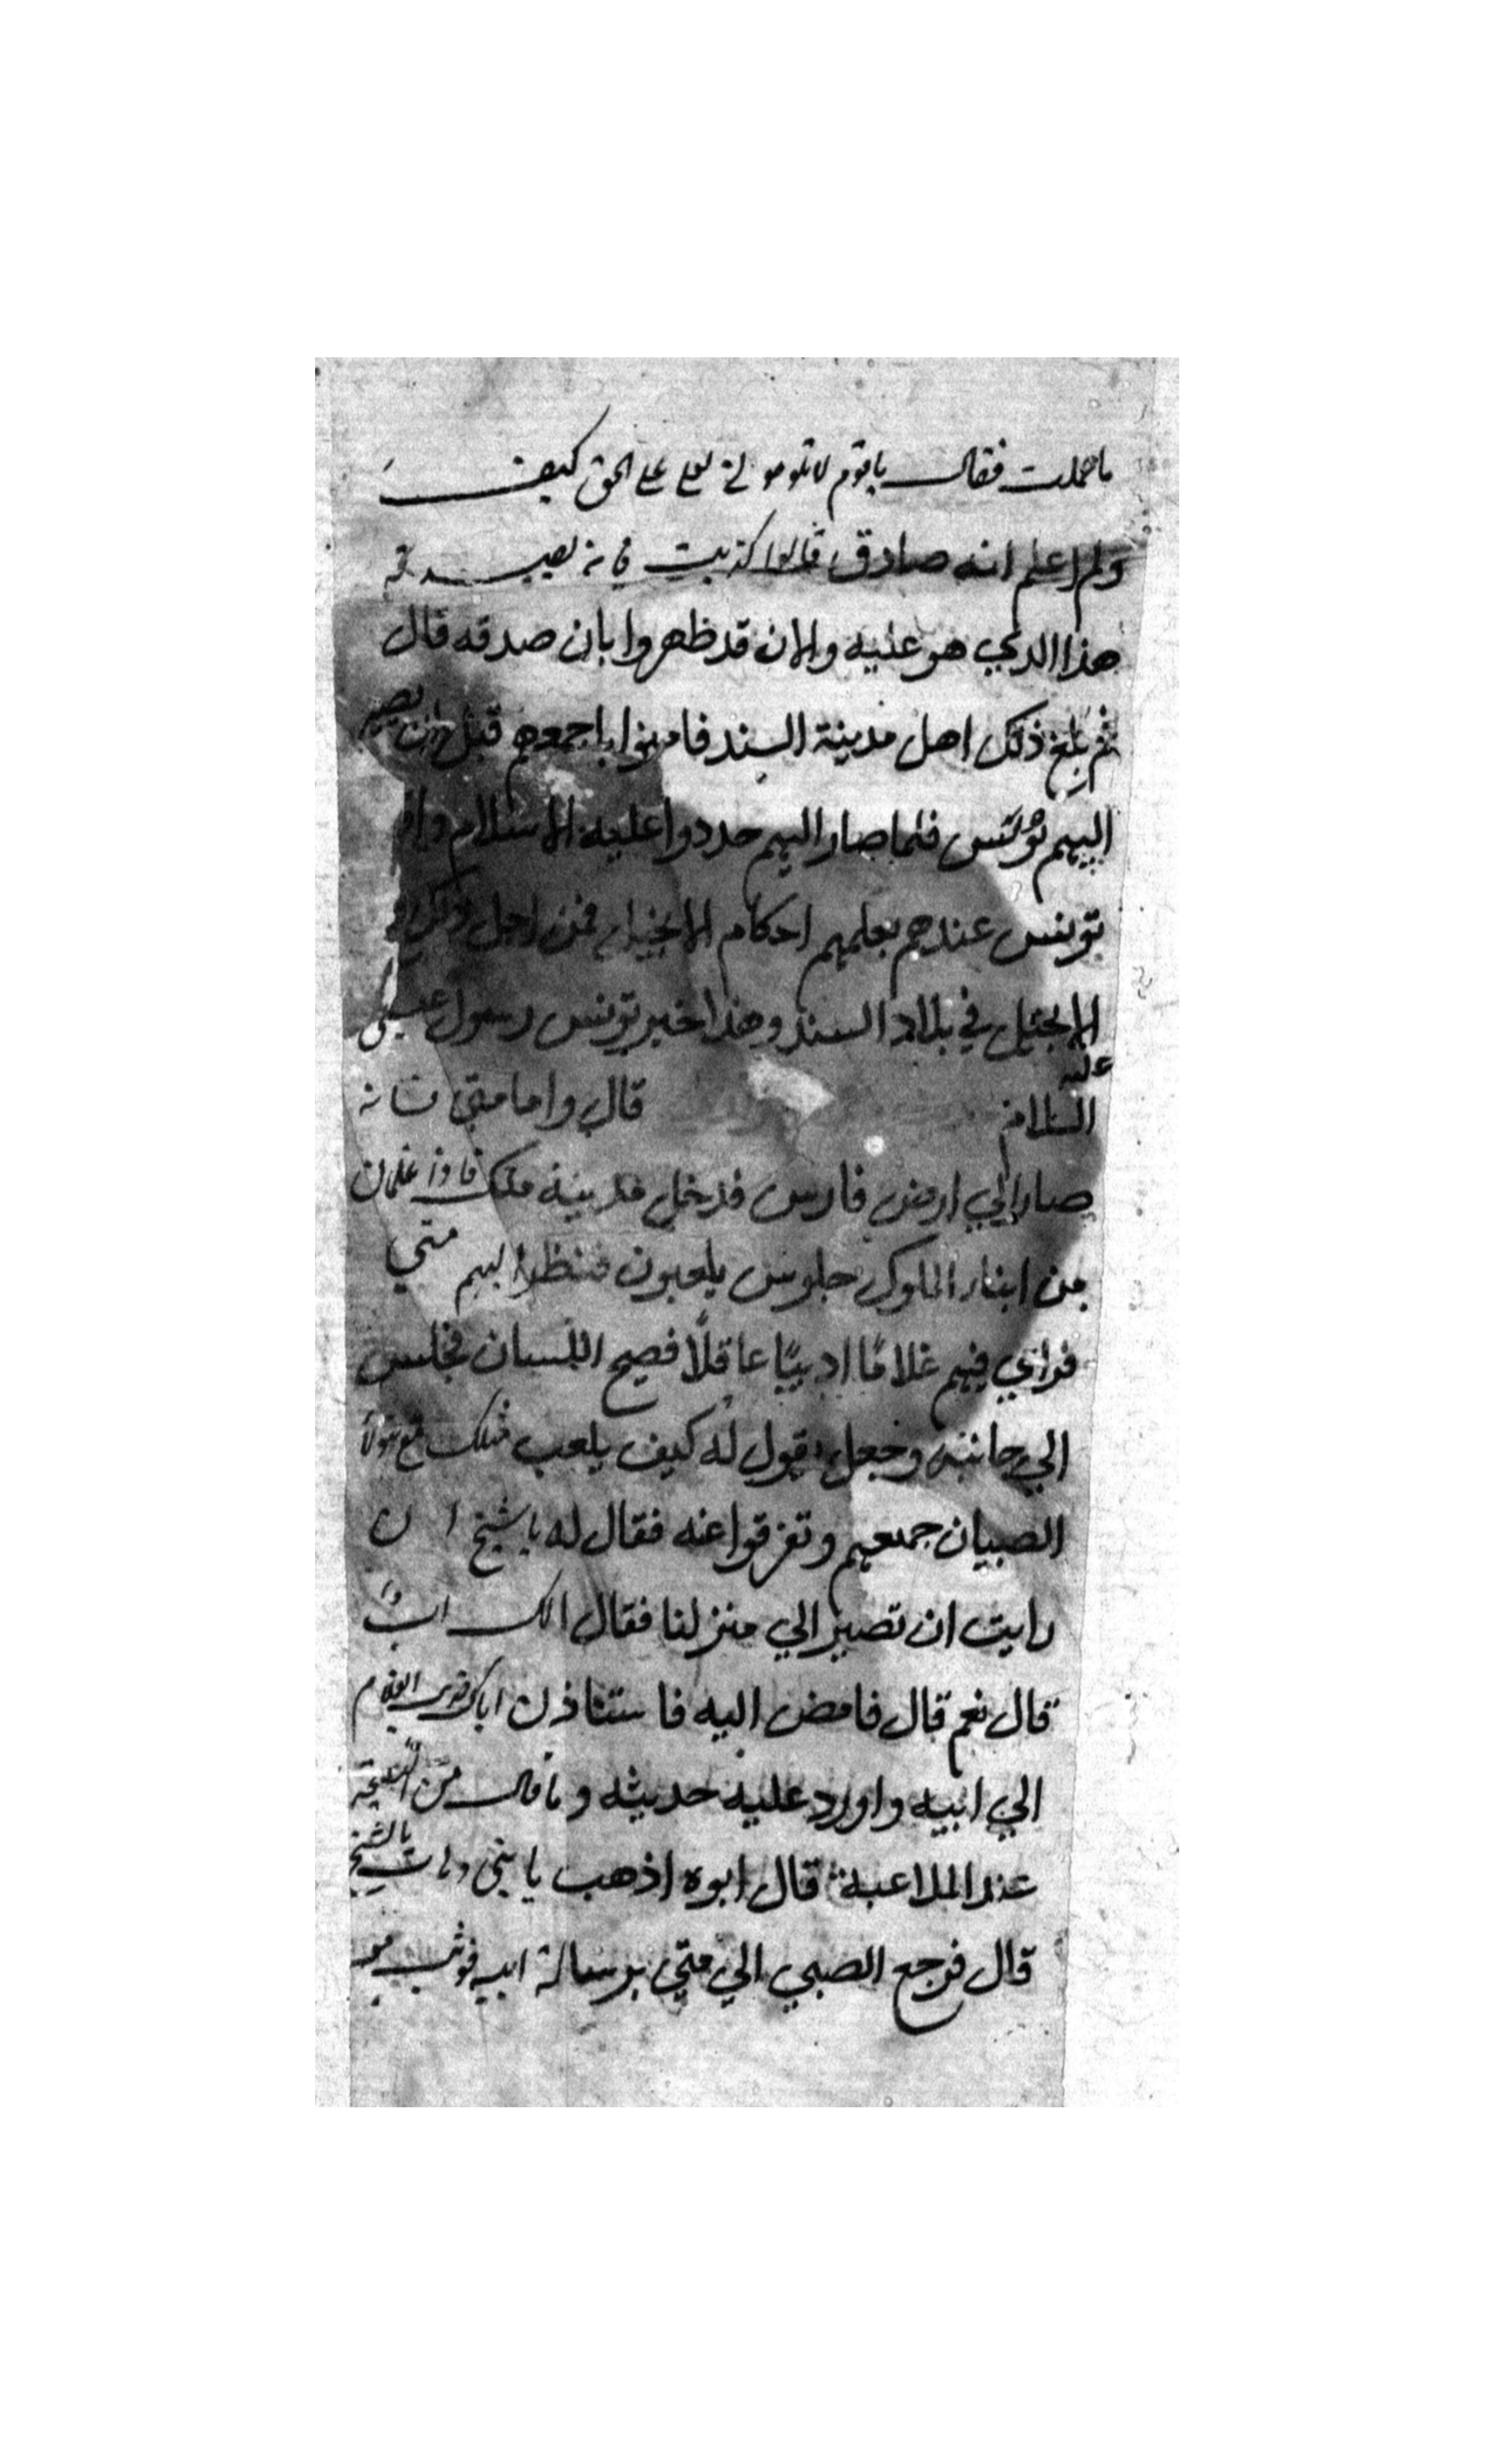 ما عملت فقال يا قوم لا تلوموني لعلي على الحق كيف
ولم اعلم انه صادق قالوا كذبت فانه يصدقه
هذا الدي هو عليه والان قد ظهر وا بان صدقه قال
ثم بلغ ذلك اهل مدينة السند فامنوا باجمعهم قبل ان يصير
اليهم تونس فلما صار اليهم جددوا عليه الاسلام واقا
تونس عندهم يعلمهم احكام الانجيل فمن اجل ذلك
الانجيل في بلاد السند وهذا خبر تونس رسول عيسى
عليه
السلام قال واما متي فانه
صار الي ارض فارس فدخل مدينة ملك فاذا غلمان
من ابناء الملوك جلوس يلعبون فنظر اليهم متي
فراي فيهم غلامًا اديبًا عاقلًا فصيح اللسان فجلس
الي جانبه وجعل يقول له كيف يلعب مثلك مع هولاء
الصبيان جمعهم وتفرقوا عنه فقال له يا شيخ ان
رايت ان تصير الي منزلنا فقال الك ابًا
قال نعم قال فامض اليه فاستاذن اباك الغلام
الي ابيه واورد عليه حديثه وما قال من النصيحة
عند الملاعبة قال ابوه اذهب يا بني وات بالشيخ
قال فرجع الصبي الي متي برسالة ابيه فوثب